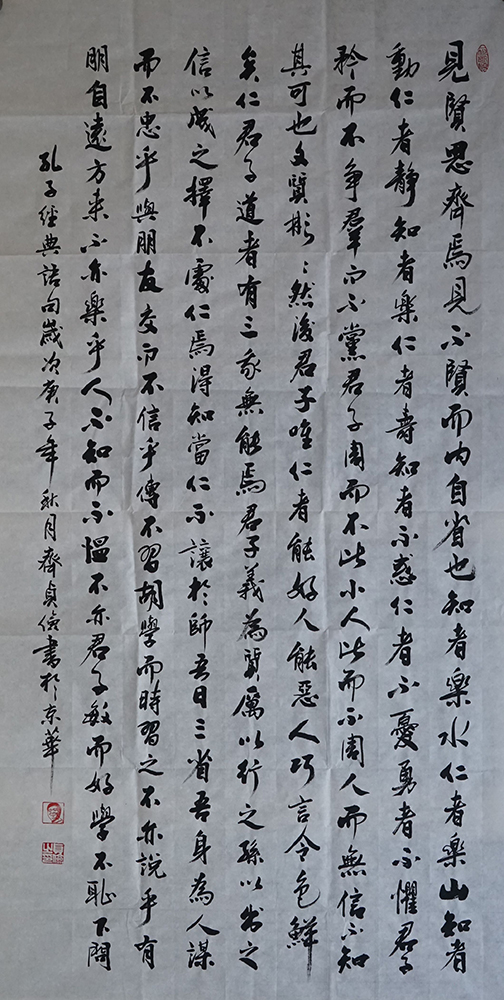 見賢思齊焉見不賢而內自省也知者樂水仁者樂山知者
動仁者靜知者樂仁者壽知者不惑仁者不憂勇者不懼君子
矜而不争羣而不黨君子周而不比小人比而不周人而無信不知
其可也文質彬彬然後君子唯仁者能好人能惡人巧言令色鮮
矣仁君子道者有三我無能焉君子義為質厲以行之孫以出之
信以成之擇不處仁焉得知當仁不讓於師吾日三省吾身為人謀
而不忠乎與朋友交而不信乎傳不習胡學而時習之不亦說乎有
朋自遠方来不亦樂乎人不知而不愠不亦君子敏而好學不恥下問
孔子經典語句歲次庚子年秋月齊貞儉書於京華